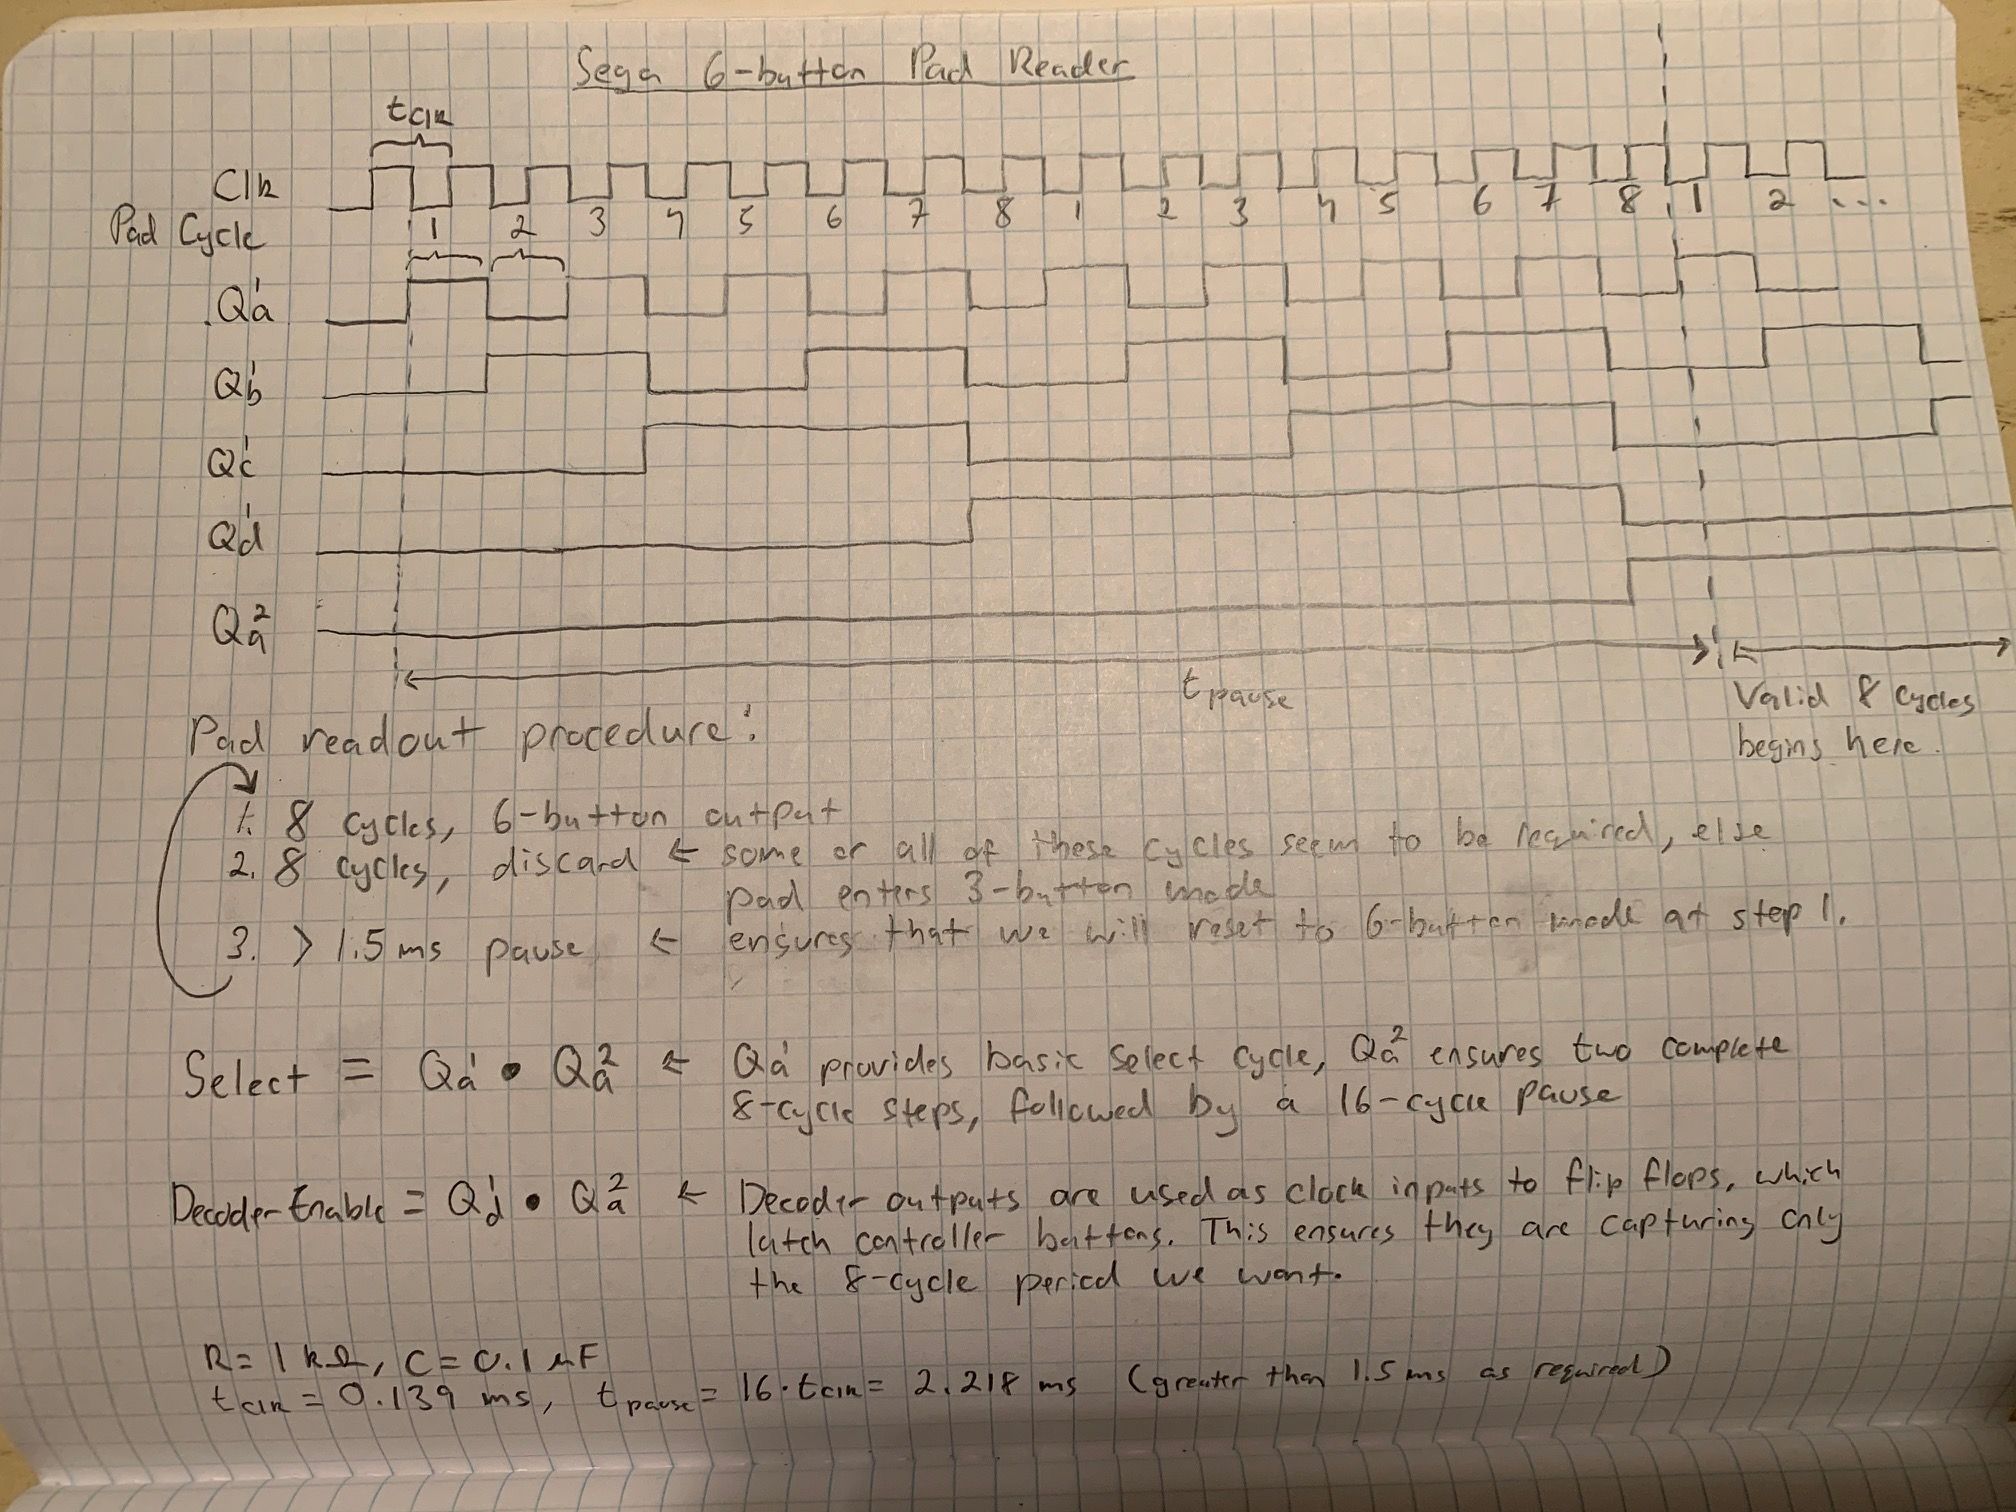 Sega 6-button Pad Reader
tclk
Clk
Pad Cycle
1 2 3 4 5 6 7 8 1 2 3 4 5 6 7 8 1 2 ...
Qa¹
Qb¹
Qc¹
Qd¹
Qa²
tpause
Valid 8 cycles
begins here.
Pad readout procedure:
1. 8 cycles, 6-button output
2. 8 cycles, discard ← some or all of these cycles seem to be required, else
pad enters 3-button mode
3. > 1.5 ms pause ← ensures that we will reset to 6-button mode at step 1.
Select = Qa¹ • Qa² ← Qa¹ provides basic select cycle, Qa² ensures two complete
8-cycle steps, followed by a 16-cycle pause
Decoder Enable = Qd¹ • Qa² ← Decoder outputs are used as clock inputs to flip flops, which
latch controller buttons. This ensures they are capturing only
the 8-cycle period we want.
R = 1 kΩ, C = 0.1 µF
tclk = 0.139 ms, tpause = 16·tclk = 2.218 ms (greater than 1.5 ms as required)